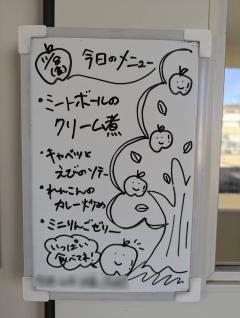 今日のメニュー
・ミートボールの
クリーム煮
・キャベツと
えびのソテー
・れんこんの
カレー炒め
・ミニりんごゼリー
いっぱい
食べてネ!